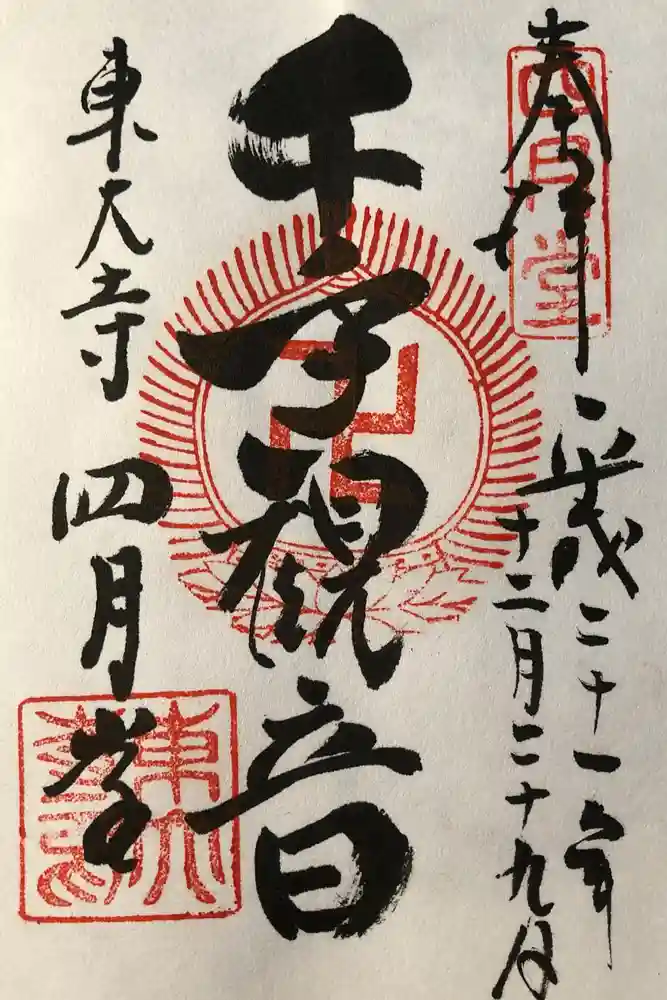 四月堂
奉拝
平成二十一年
十二月二十九日
千手観音
卍
東大寺 四月堂